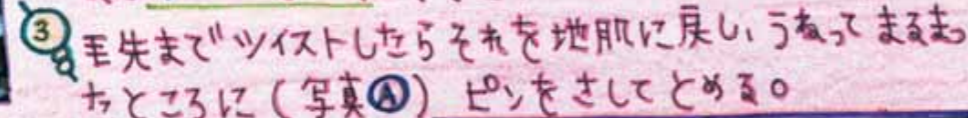 ③ 毛先までツイストしたらそれを地肌に戻し、うねってまるまっ
たところに(写真Ⓐ) ピンをさしてとめる。